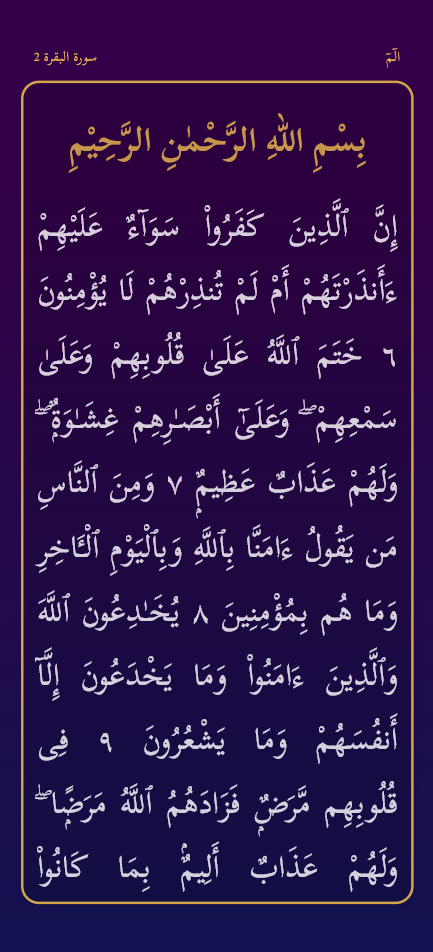 الٓمٓ
سورة البقرة 2
بِسْمِ اللهِ الرَّحْمٰنِ الرَّحِيْمِ
إِنَّ ٱلَّذِينَ كَفَرُوا۟ سَوَآءٌ عَلَيْهِمْ
ءَأَنذَرْتَهُمْ أَمْ لَمْ تُنذِرْهُمْ لَا يُؤْمِنُونَ
٦ خَتَمَ ٱللَّهُ عَلَىٰ قُلُوبِهِمْ وَعَلَىٰ
سَمْعِهِمْ ۖ وَعَلَىٰٓ أَبْصَـٰرِهِمْ غِشَـٰوَةٌۭ ۖ
وَلَهُمْ عَذَابٌ عَظِيمٌۭ ٧ وَمِنَ ٱلنَّاسِ
مَن يَقُولُ ءَامَنَّا بِٱللَّهِ وَبِٱلْيَوْمِ ٱلْـَٔاخِرِ
وَمَا هُم بِمُؤْمِنِينَ ٨ يُخَـٰدِعُونَ ٱللَّهَ
وَٱلَّذِينَ ءَامَنُوا۟ وَمَا يَخْدَعُونَ إِلَّآ
أَنفُسَهُمْ وَمَا يَشْعُرُونَ ٩ فِى
قُلُوبِهِم مَّرَضٌۭ فَزَادَهُمُ ٱللَّهُ مَرَضًۭا ۖ
وَلَهُمْ عَذَابٌ أَلِيمٌۢ بِمَا كَانُوا۟